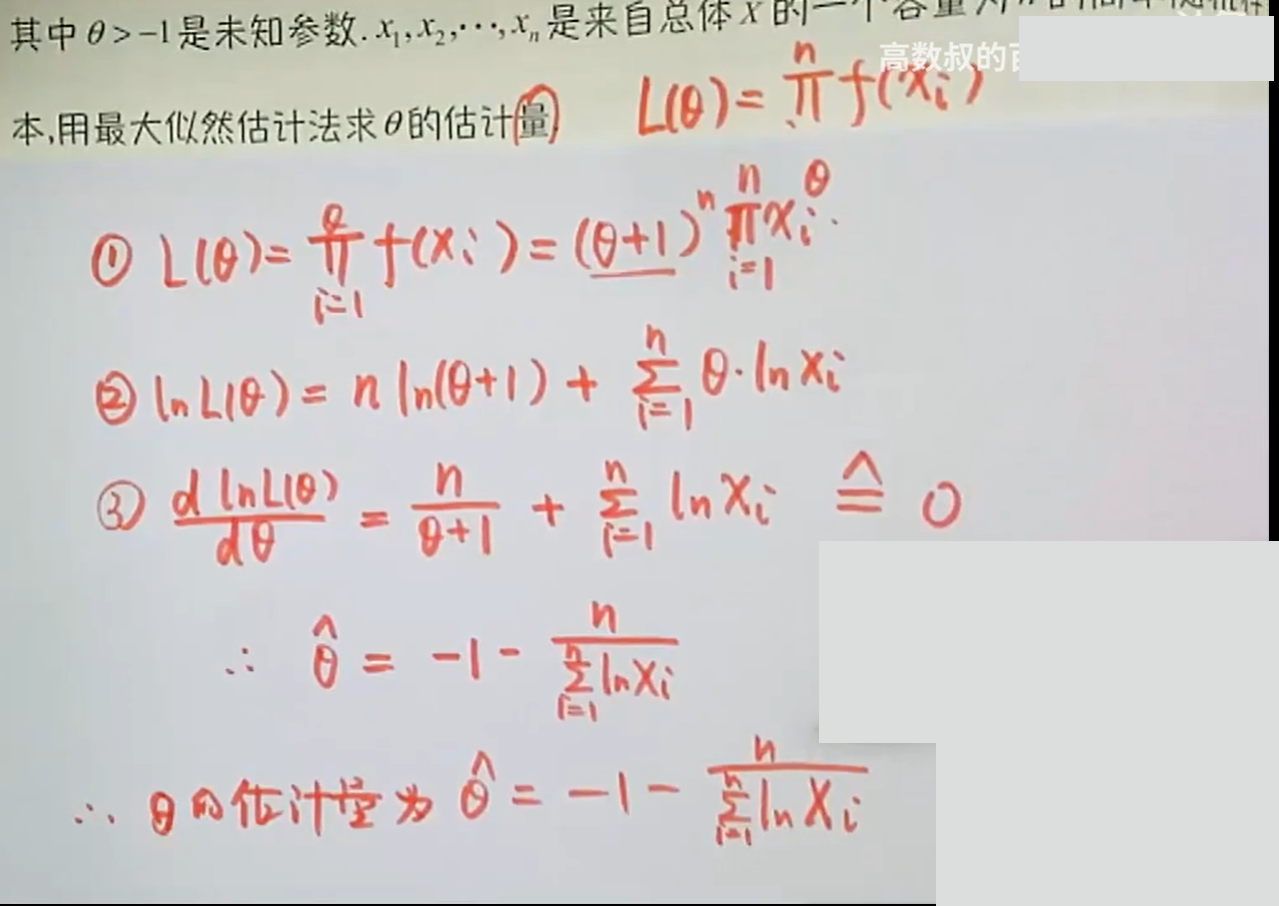 其中θ>-1是未知参数.x₁,x₂,⋯,xₙ是来自总体X的一个容量为n的简单随机样
高数叔的
本,用最大似然估计法求θ的估计量. L(θ)= n∏ f(xᵢ)
① L(θ)= ∏ i=1 f(xᵢ)=(θ+1)ⁿ n∏i=1 xᵢ^θ.
② lnL(θ)= n ln(θ+1) + n∑i=1 θ·lnxᵢ
③ d lnL(θ)/dθ = n/(θ+1) + n∑i=1 lnxᵢ ≙ 0
∴ θ̂ = -1 - n/(n∑i=1 lnxᵢ)
∴ θ的估计量为 θ̂ = -1 - n/(n∑i=1 lnXᵢ)